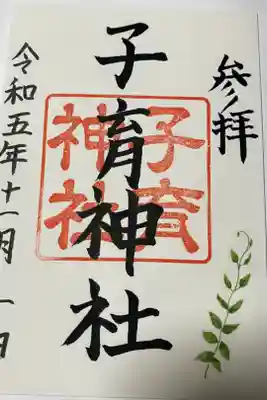 参拝
子育神社
子育
神社
令和五年十一月一日